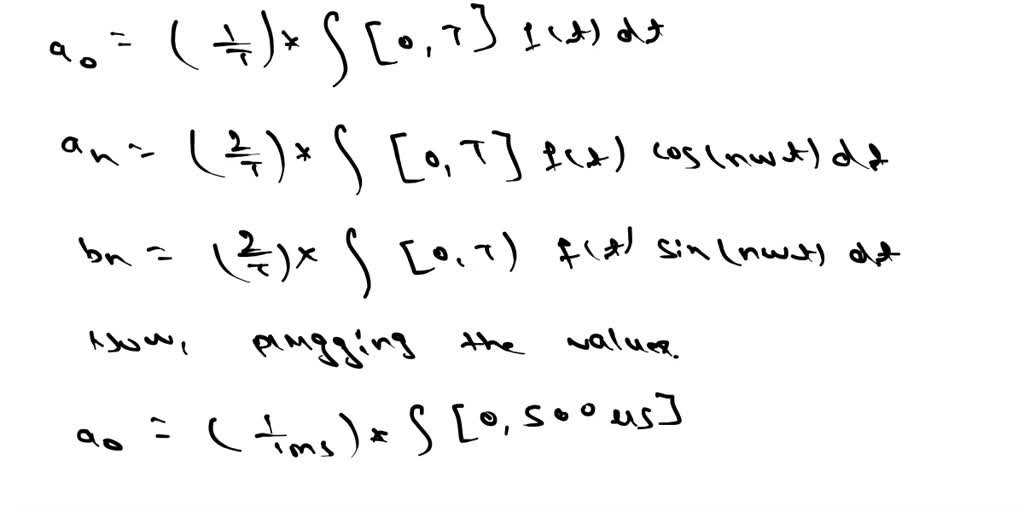 a₀ = (1/T) * ∫ [0, T] f(t) dt
aₙ = (2/T) * ∫ [0, T] f(t) cos(nωt) dt
bₙ = (2/T) * ∫ [0, T) f(t) sin(nωt) dt
Now, plugging the values.
a₀ = (1/1ms) * ∫ [0, 500 us]